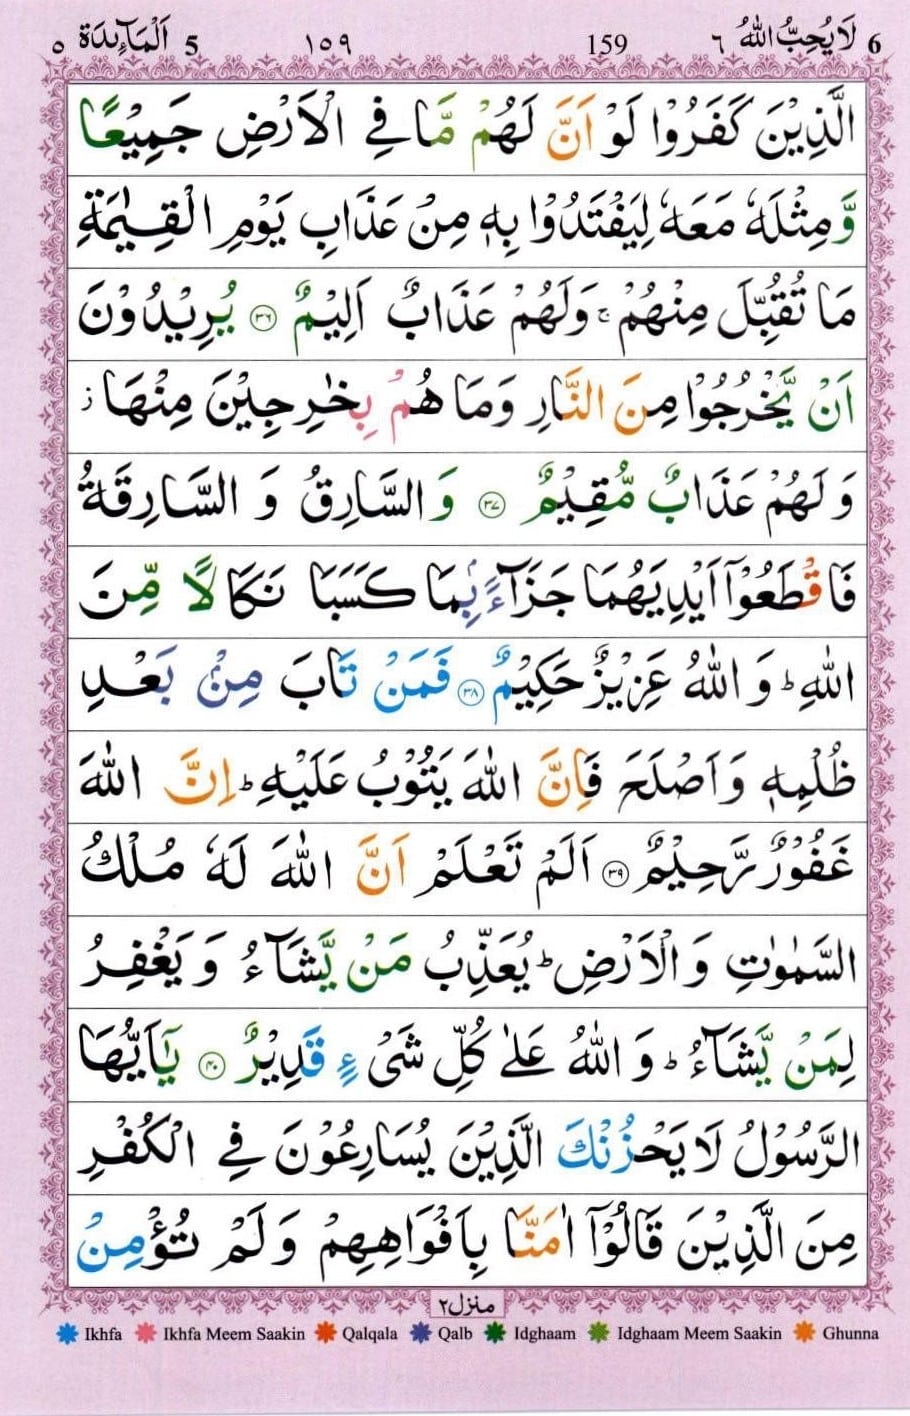 6 لَا يُحِبُّ اللّٰهُ ٦ 159 ١٥٩ 5 اَلْمَآئِدَة ٥
الَّذِيْنَ كَفَرُوْا لَوْ اَنَّ لَهُمْ مَّا فِي الْاَرْضِ جَمِيْعًا
وَّ مِثْلَهٗ مَعَهٗ لِيَفْتَدُوْا بِهٖ مِنْ عَذَابِ يَوْمِ الْقِيٰمَةِ
مَا تُقُبِّلَ مِنْهُمْ ۚ وَلَهُمْ عَذَابٌ اَلِيْمٌ ۝٣٦ يُرِيْدُوْنَ
اَنْ يَّخْرُجُوْا مِنَ النَّارِ وَمَا هُمْ بِخٰرِجِيْنَ مِنْهَا ز
وَ لَهُمْ عَذَابٌ مُّقِيْمٌ ۝٣٧ وَ السَّارِقُ وَ السَّارِقَةُ
فَاقْطَعُوْۤا اَيْدِيَهُمَا جَزَآءًۢ بِمَا كَسَبَا نَكَالًا مِّنَ
اللّٰهِ ؕ وَ اللّٰهُ عَزِيْزٌ حَكِيْمٌ ۝٣٨ فَمَنْ تَابَ مِنْۢ بَعْدِ
ظُلْمِهٖ وَ اَصْلَحَ فَاِنَّ اللّٰهَ يَتُوْبُ عَلَيْهِ ؕ اِنَّ اللّٰهَ
غَفُوْرٌ رَّحِيْمٌ ۝٣٩ اَلَمْ تَعْلَمْ اَنَّ اللّٰهَ لَهٗ مُلْكُ
السَّمٰوٰتِ وَ الْاَرْضِ ؕ يُعَذِّبُ مَنْ يَّشَآءُ وَ يَغْفِرُ
لِمَنْ يَّشَآءُ ؕ وَ اللّٰهُ عَلٰى كُلِّ شَیْءٍ قَدِيْرٌ ۝٤٠ يٰۤاَيُّهَا
الرَّسُوْلُ لَا يَحْزُنْكَ الَّذِيْنَ يُسَارِعُوْنَ فِي الْكُفْرِ
مِنَ الَّذِيْنَ قَالُوْۤا اٰمَنَّا بِاَفْوَاهِهِمْ وَ لَمْ تُؤْمِنْ
منزل ٢
Ikhfa Ikhfa Meem Saakin Qalqala Qalb Idghaam Idghaam Meem Saakin Ghunna